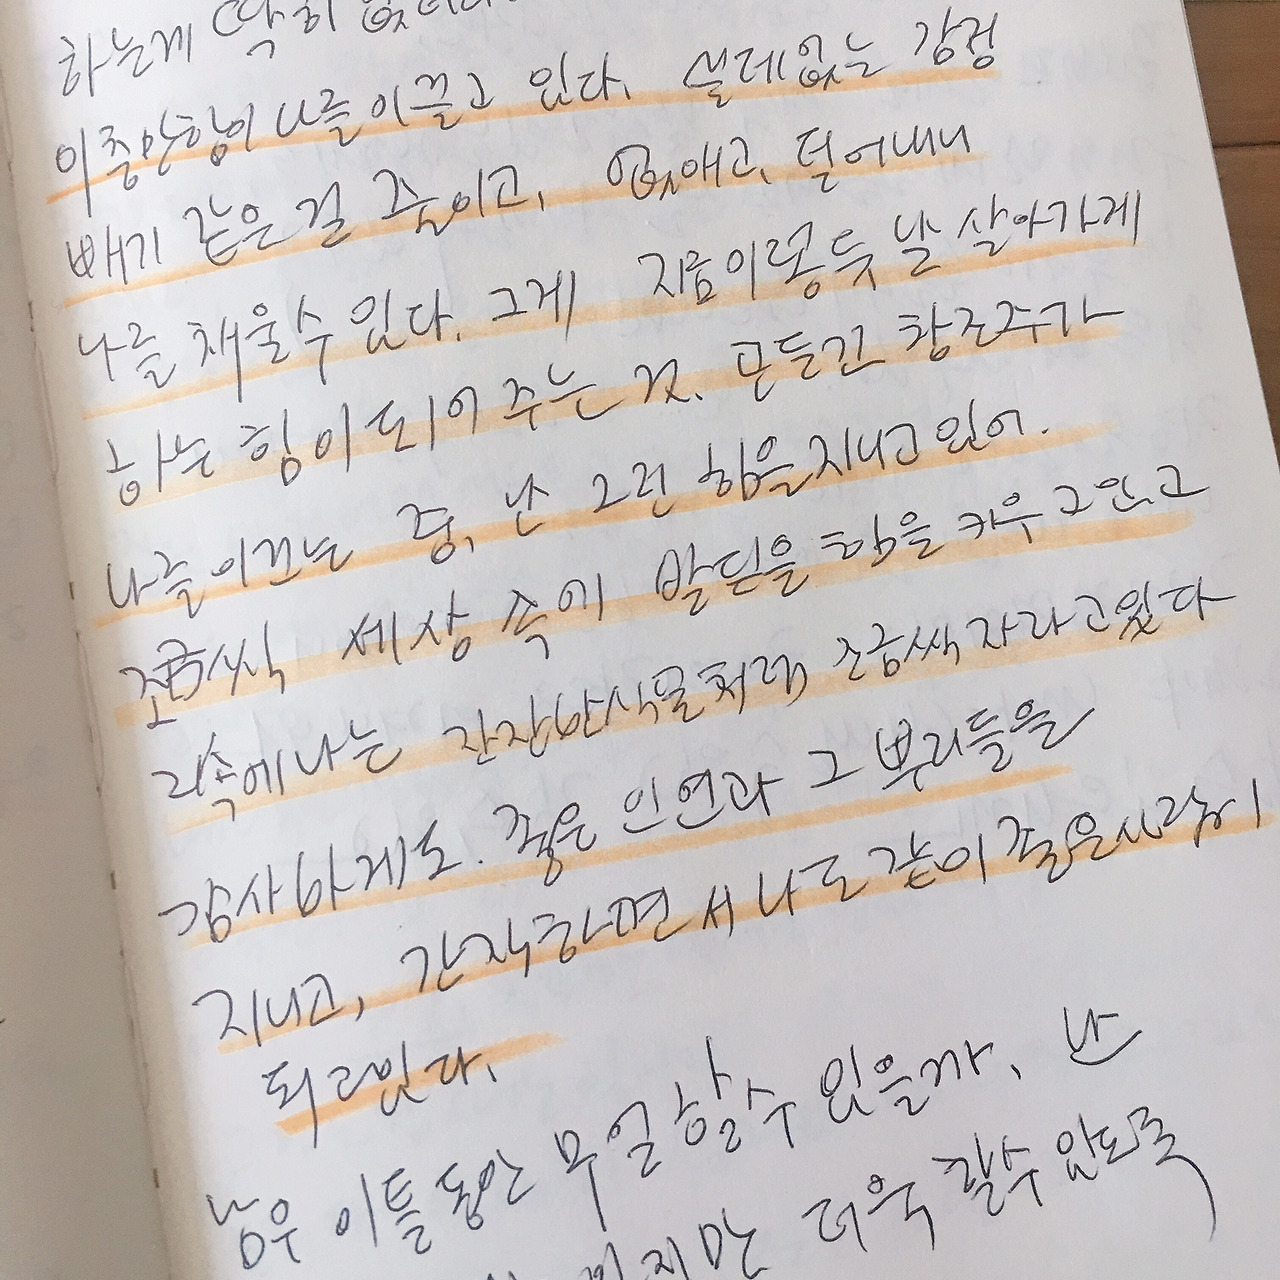 하는게 딱히 없더라
이 중압함이 나를 이끌고 있다. 쓸데없는 감정
빼기 같은 걸 줄이고, 없애고, 덜어내니
나를 채울수 있다. 그게 지금 이 몽둥 날 살아가게
하는 힘이 되어 주는 것. 만들긴 창조주가
나를 이끄는 중, 난 그런 힘을 지니고 있어.
조금씩 세상 속에 발딛을 힘을 키우고 있고
리속에 나는 잔잔한 식물처럼 조금씩 자라고있다
감사하게도. 좋은 인연과 그 뿌리들을
지니고, 간직하면서 나도 같이 좋은사람이
되고있다.
남은 이틀동안 무얼 할수 있을까, 난
지만 더욱 잘수 있도록